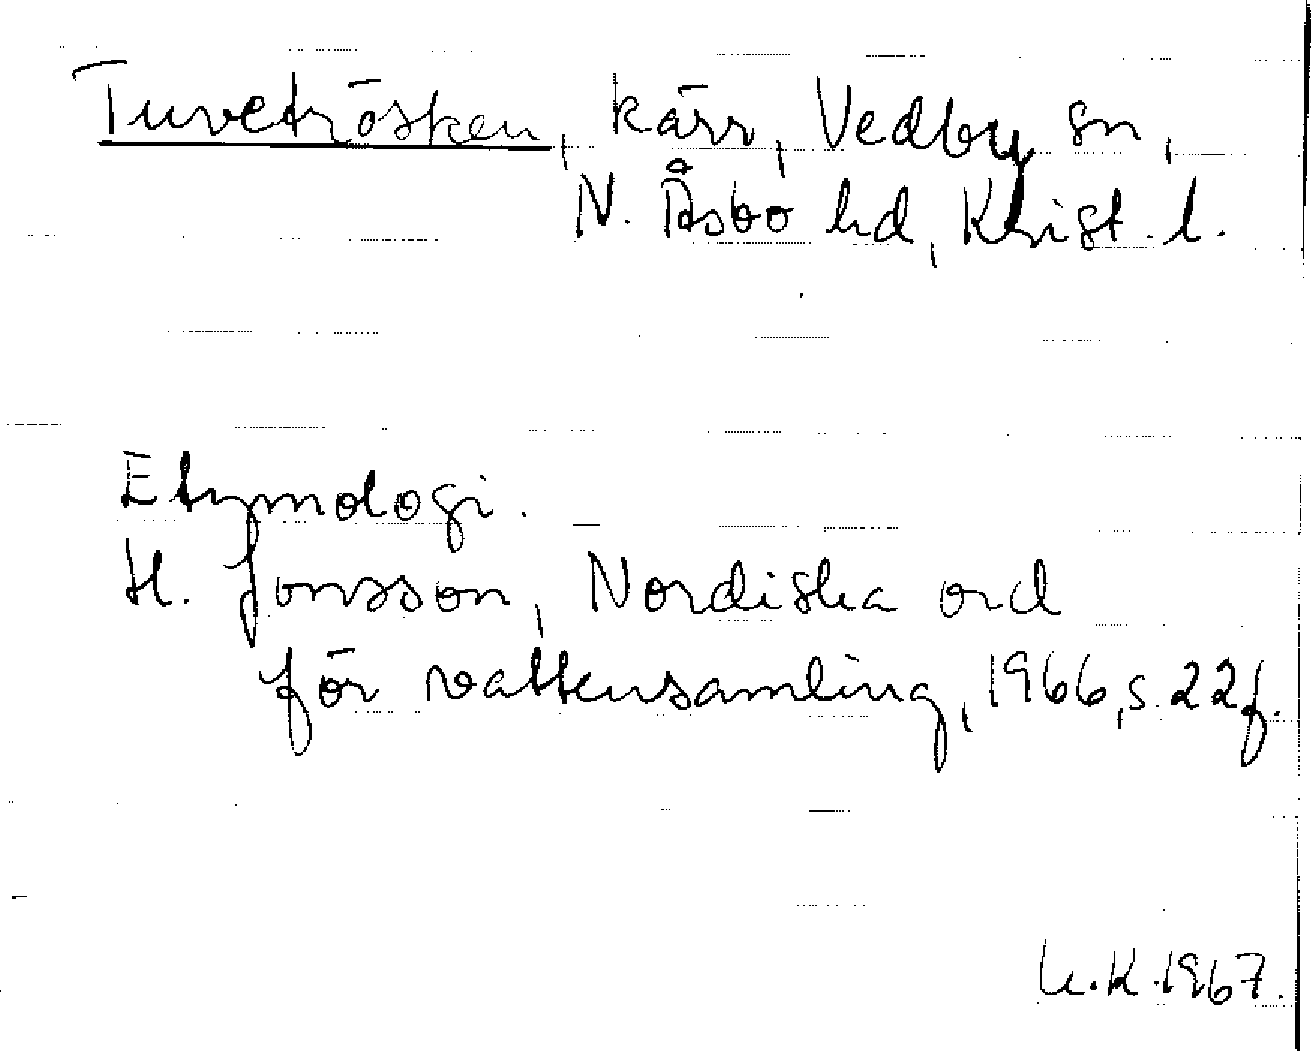 Tuveträsken, kärr, Vedby sn,
N. Åsbo hd, Krist. l.
Etymologi.
H. Jonsson, Nordiska ord
för vattensamling, 1966, s. 22f.
U.K. 1967.